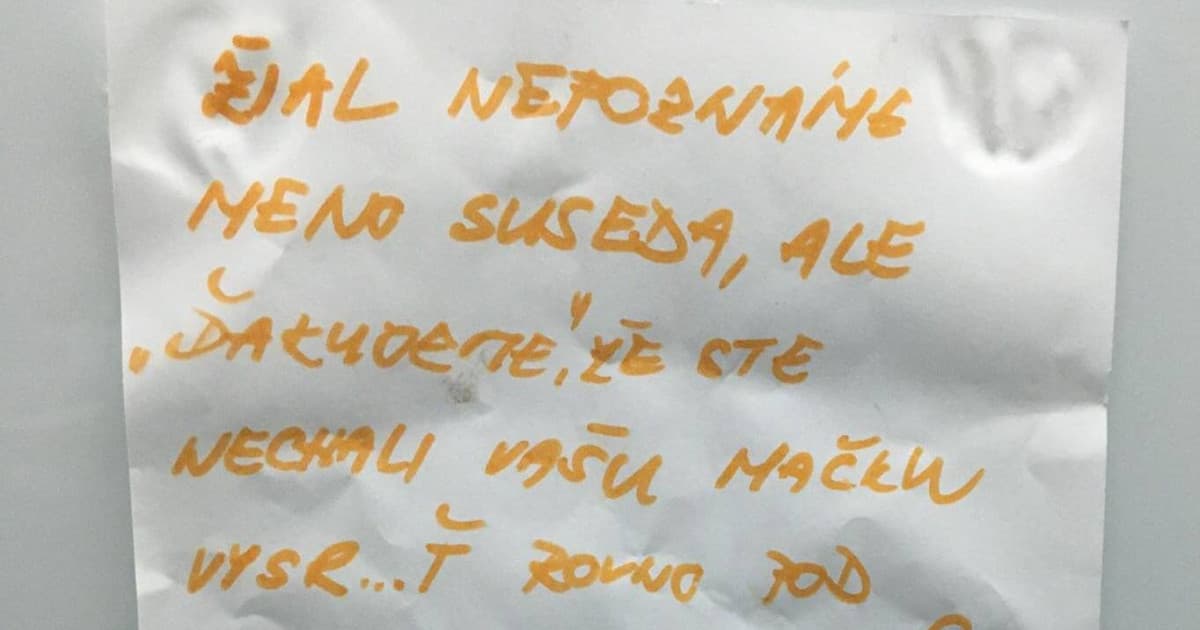 ŽIAL NEPOZNÁME
MENO SUSEDA, ALE
„ĎAKUJEME", ŽE STE
NECHALI VAŠU MAČKU
VYSR...Ť ROVNO POD